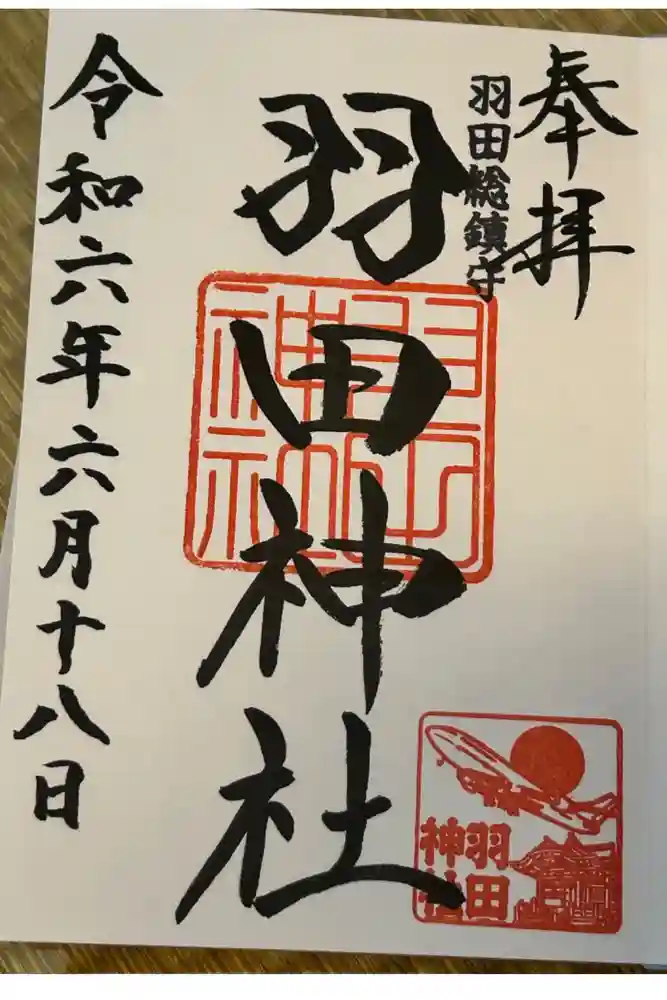 奉拝
羽田総鎮守
羽田神社
羽田
神社
羽田
神社
令和六年六月十八日